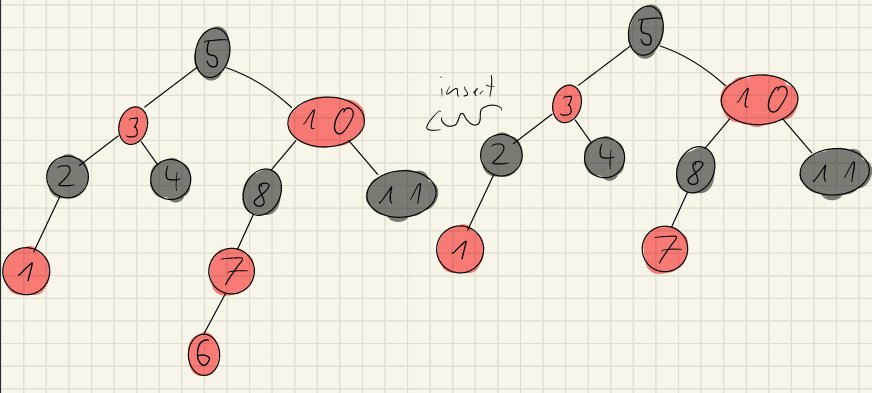 5
3 10
2 4 8 11
1 7
6
insert
5
3 10
2 4 8 11
1 7